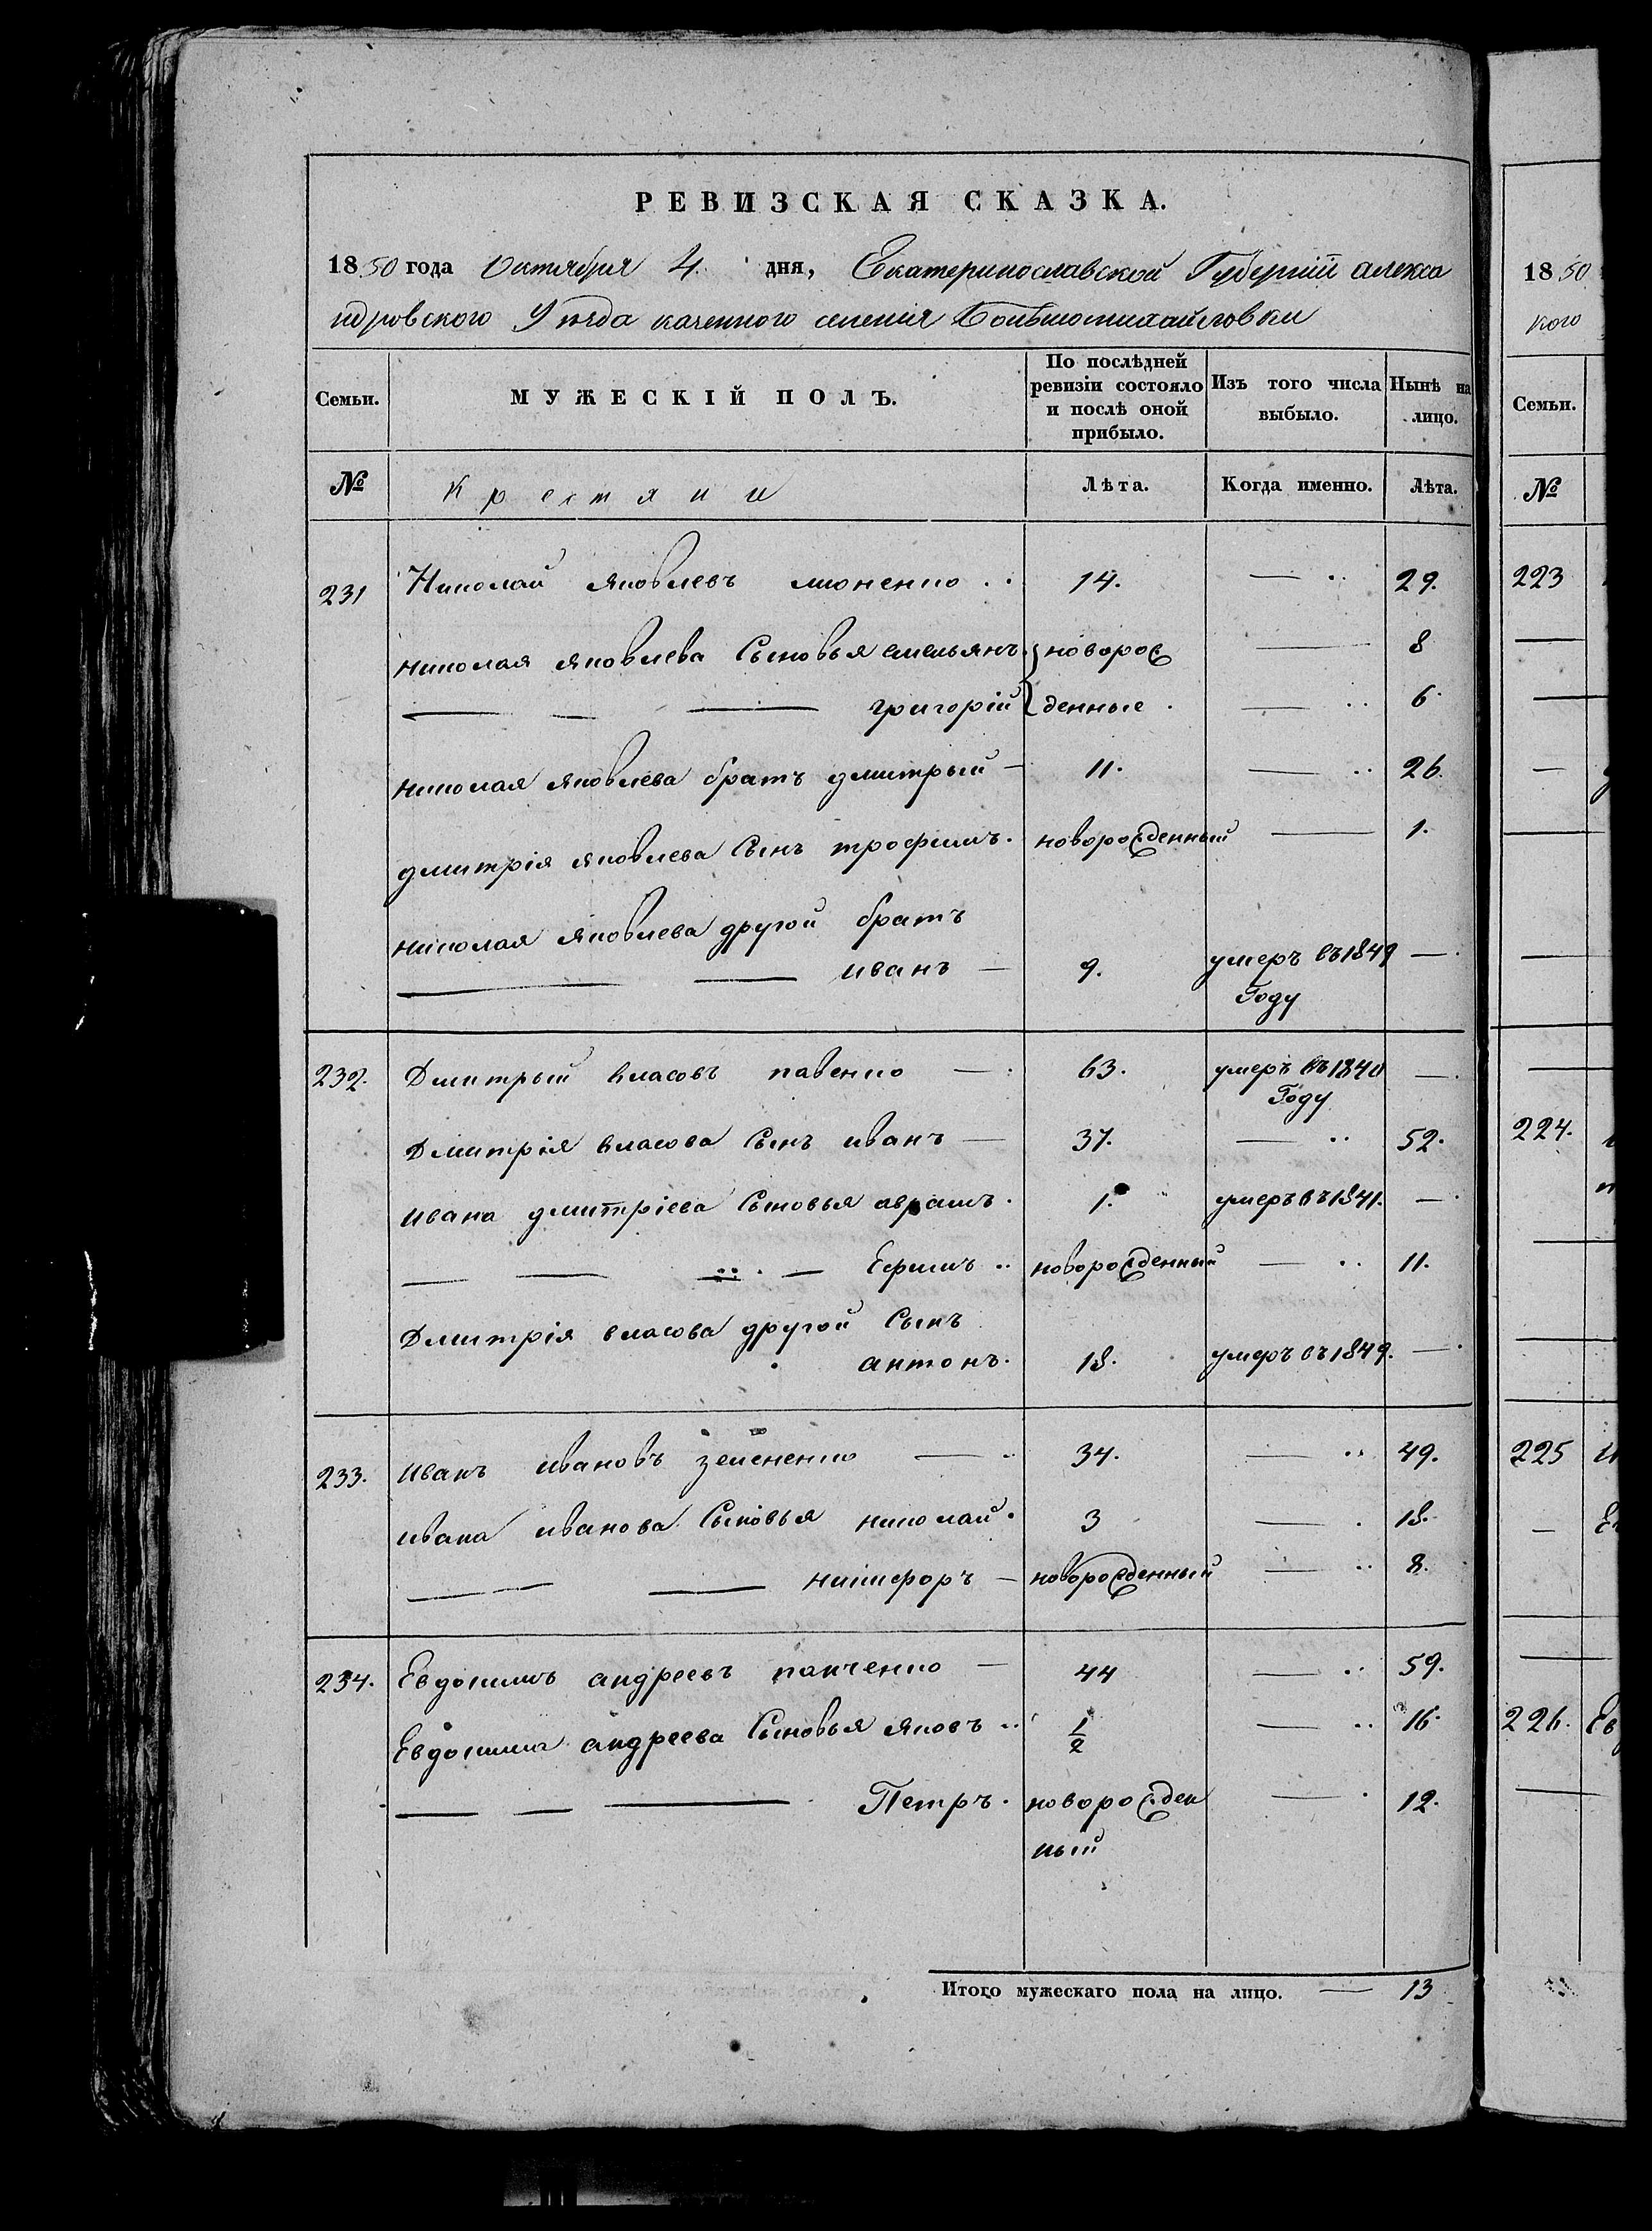 РЕВИЗСКАЯ СКАЗКА.
1850 года Октября 4. дня, Екатеринославской Губерніи алекса
ндровского Уѣзда казенного селенія Большомихайловки
Семьи. МУЖЕСКІЙ ПОЛЪ. По послѣдней ревизіи состояло и послѣ оной прибыло. Изъ того числа выбыло. Нынѣ на лицо.
№ Крестяни Лѣта. Когда именно. Лѣта.
231 Николай яковлевъ 14. — 29.
николая яковлева Сыновья емельянъ. новорож — 8
— — — григорій денные. — 6
николая яковлева братъ дмитрый — 11. — 26.
дмитрія яковлева Сынъ трофимъ. новорожденный — 1.
николая яковлева другой братъ
— — иванъ — 9. умеръ въ 1849 —
Году
232. Дмитрый власовъ — 63. умеръ въ 1840 —
Году
Дмитрія власова Сынъ иванъ — 37. — 52.
ивана дмитріева Сыновья аврамъ. 1. умеръ въ 1841. —
— — — Ефимъ новорожденный — 11.
Дмитрія власова другой Сынъ
антонъ. 18. умеръ въ 1849. —
233. иванъ ивановъ — 34. — 49.
ивана иванова Сыновья николай. 3 — 18.
— — никифоръ — новорожденный — 8.
234. Евдокимъ андреевъ панченко — 44 — 59.
Евдокима андреева Сыновья яковъ 1/2 — 16.
— — — Петръ. новорожден — 12.
ный
Итого мужескаго пола на лицо. — 13
1850
кого
Семьи.
№
223
224.
225
226.